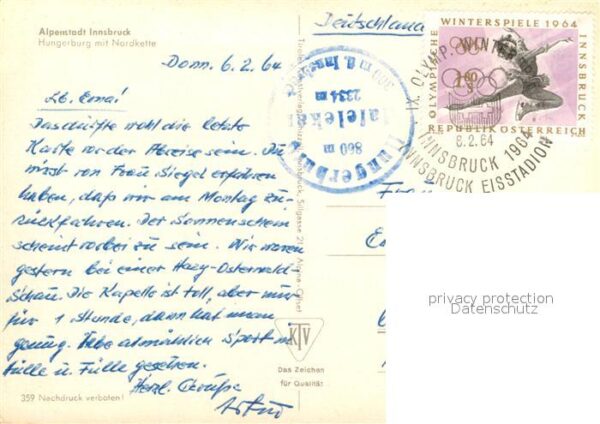 Alpenstadt Innsbruck
Hungerburg mit Nordkette
Donn. 6.2.64
Lb. Erna!
Das dürfte wohl die letzte
Karte vor der Abreise sein. Du
wirst von Frau Siegel erfahren
haben, daß wir am Montag zu-
rückfahren. Der Sonnenschein
scheint vorbei zu sein. Wir waren
gestern bei einer Hazy-Osterwald-
Schau. Die Kapelle ist toll, aber nur
für 1 Stunde, dann hat man
genug. Habe allmählich Sport in
Hülle u. Fülle gesehen.
Herzl. Grüße
Artur
359 Nachdruck verboten!
KTV
Das Zeichen
für Qualität
Deutschland
Hungerburg
860 m
Hafelekar
2334 m
OLYMPISCHE WINTERSPIELE 1964 INNSBRUCK
1.80
REPUBLIK ÖSTERREICH
IX. OLYMP. WINTER
6.2.64
INNSBRUCK 1964
INNSBRUCK EISSTADION
Frau
privacy protection
Datenschutz